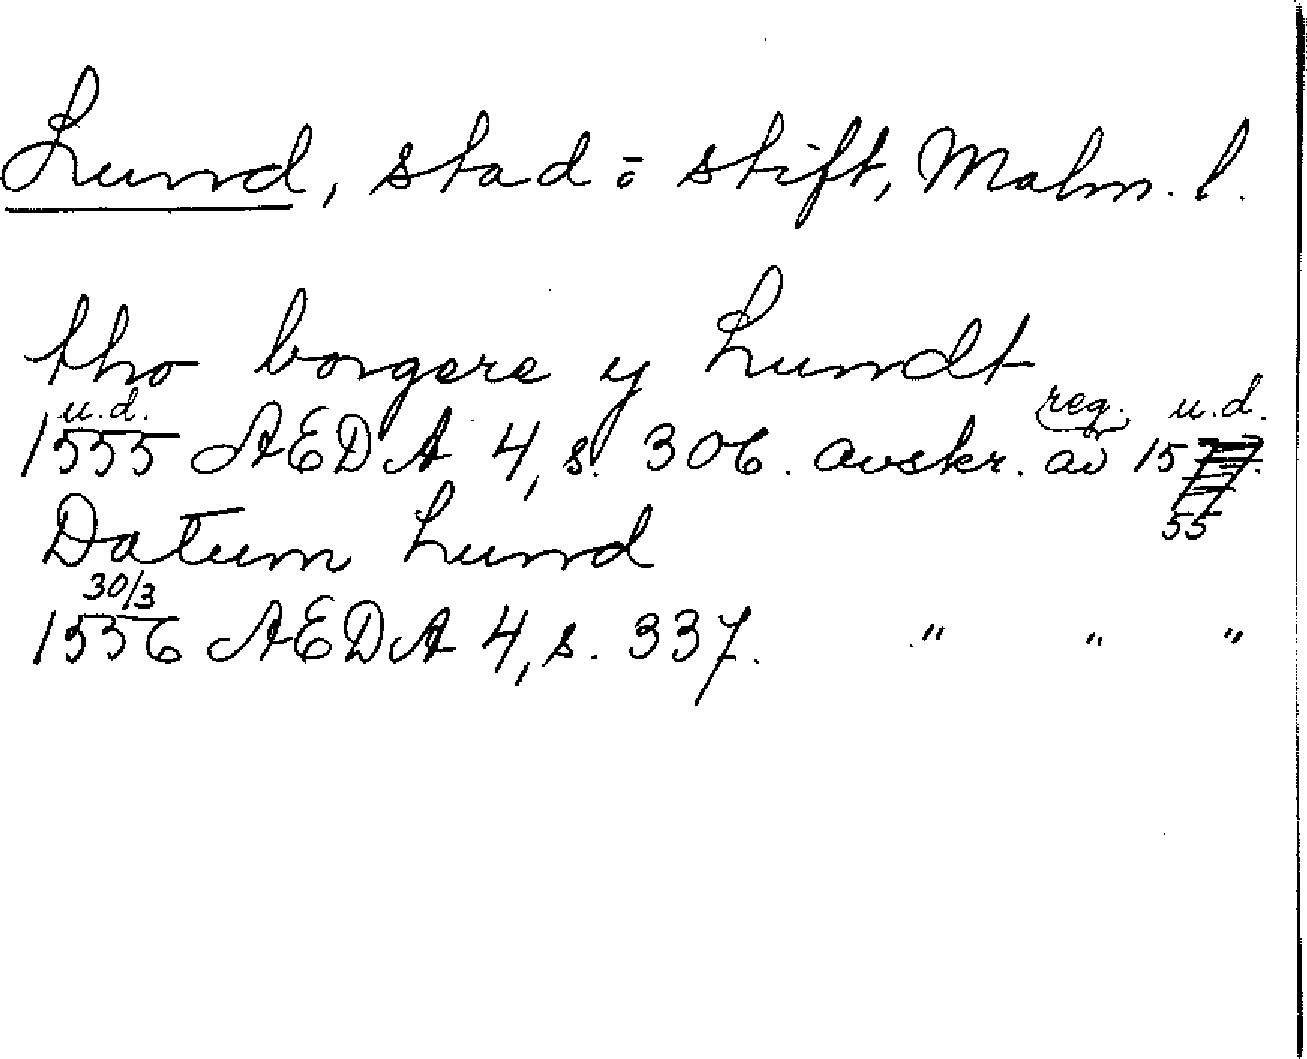 Lund, stad o. stift, Malm. l.
tho borgere y Lundt
u.d. reg. u.d.
1555 AEDA 4, s. 306. avskr. av 15
55
Datum Lund
30/3
1556 AEDA 4, s. 337. " " "